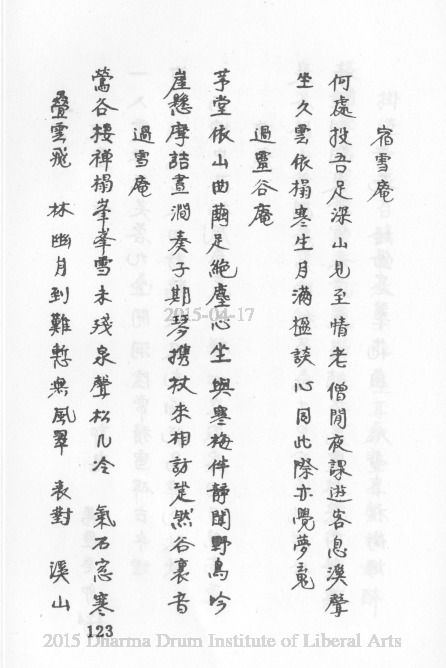 宿雪庵
何處投吾足深山見至情老僧閒夜課遊客息溪聲
坐久雲依榻寒生月滿楹談心同此際亦覺夢魂
過靈谷庵
茅堂依山曲繭足絕塵心坐與寒梅伴靜聞野鳥吟
崖懸摩詰畫澗奏子期琴携杖來相訪跫然谷裏音
過雪庵
鶯谷接禪榻峯峯雪未殘泉聲松几冷 氣石窓寒
疊雲飛 林幽月到難慙無風翠 表對 溪山
123
2015-04-17
2015 Dharma Drum Institute of Liberal Arts